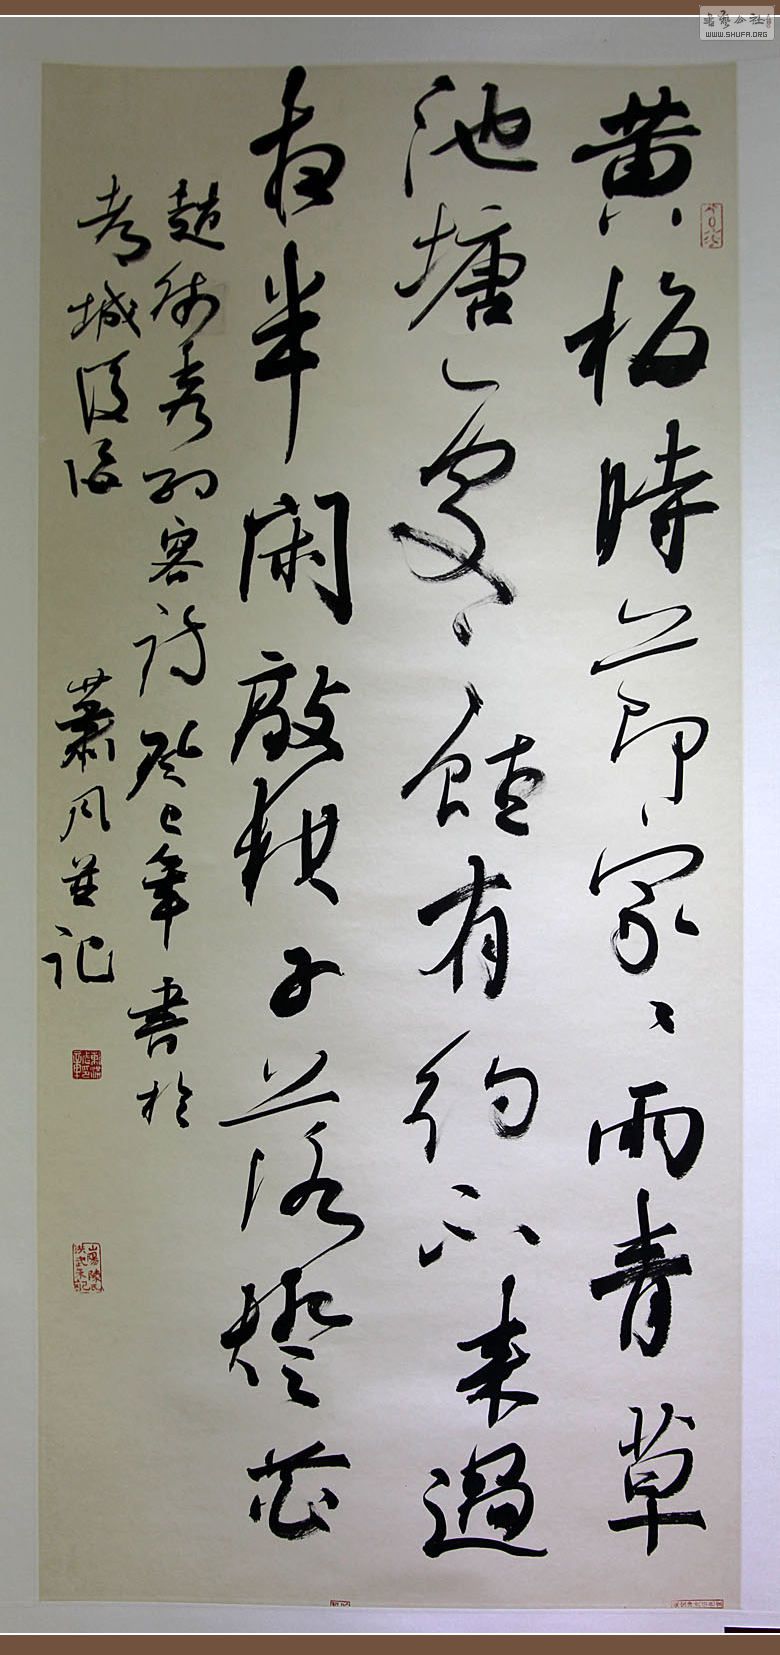 黄梅時節家々雨青草
池塘處々蛙有約不来過
夜半閑敲棋子落燈花
趙師秀約客詩癸巳年書於
蕭風并記
书艺公社
WWW.SHUFA.ORG